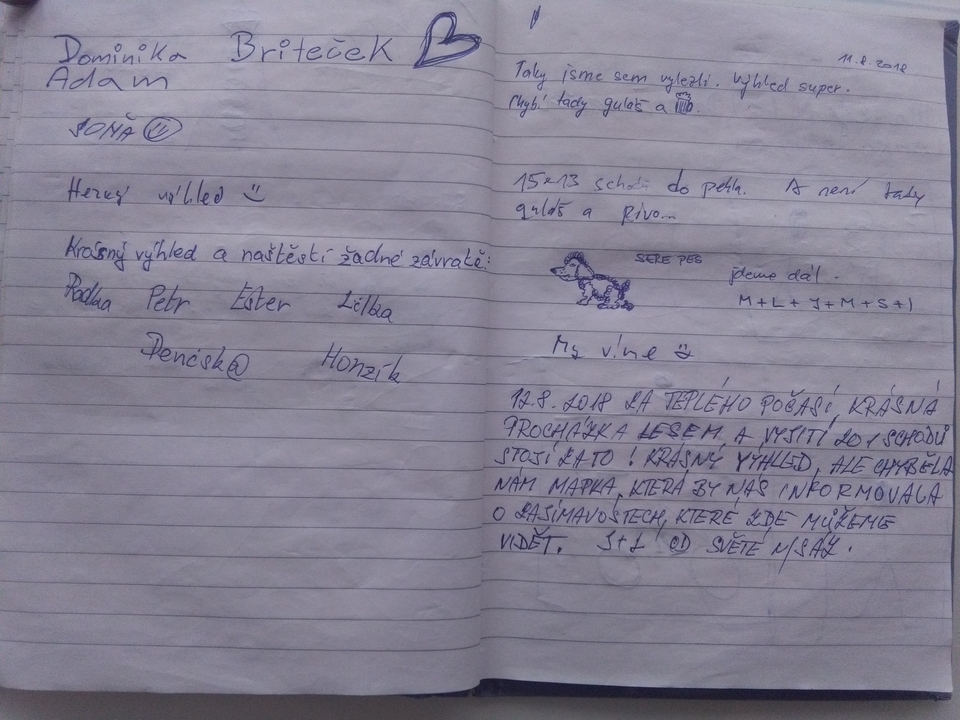 Dominika Briteček
Adam
SOŇA
Hezký výhled
Krásný výhled a naštěstí žádné závratě:
Radka Petr Ester Lilka
Denisk@ Honzík
11.8.2018
Taky jsme sem vylezli. Výhled super.
Chybí tady guláš a
15×13 schodů do pekla. A není tady
guláš a pivo...
SERE PES
jdeme dál.
M+L+J+M+S+J
My víme
12.8.2018 ZA TEPLÉHO POČASÍ, KRÁSNÁ
PROCHÁZKA LESEM A VYJITÍ 201 SCHODŮ
STOJÍ ZA TO! KRÁSNÝ VÝHLED, ALE CHYBĚLA
NÁM MAPKA, KTERÁ BY NÁS INFORMOVALA
O ZAJÍMAVOSTECH, KTERÉ ZDE MŮŽEME
VIDĚT. J+L OD SVĚTÉ N/SÁZ.